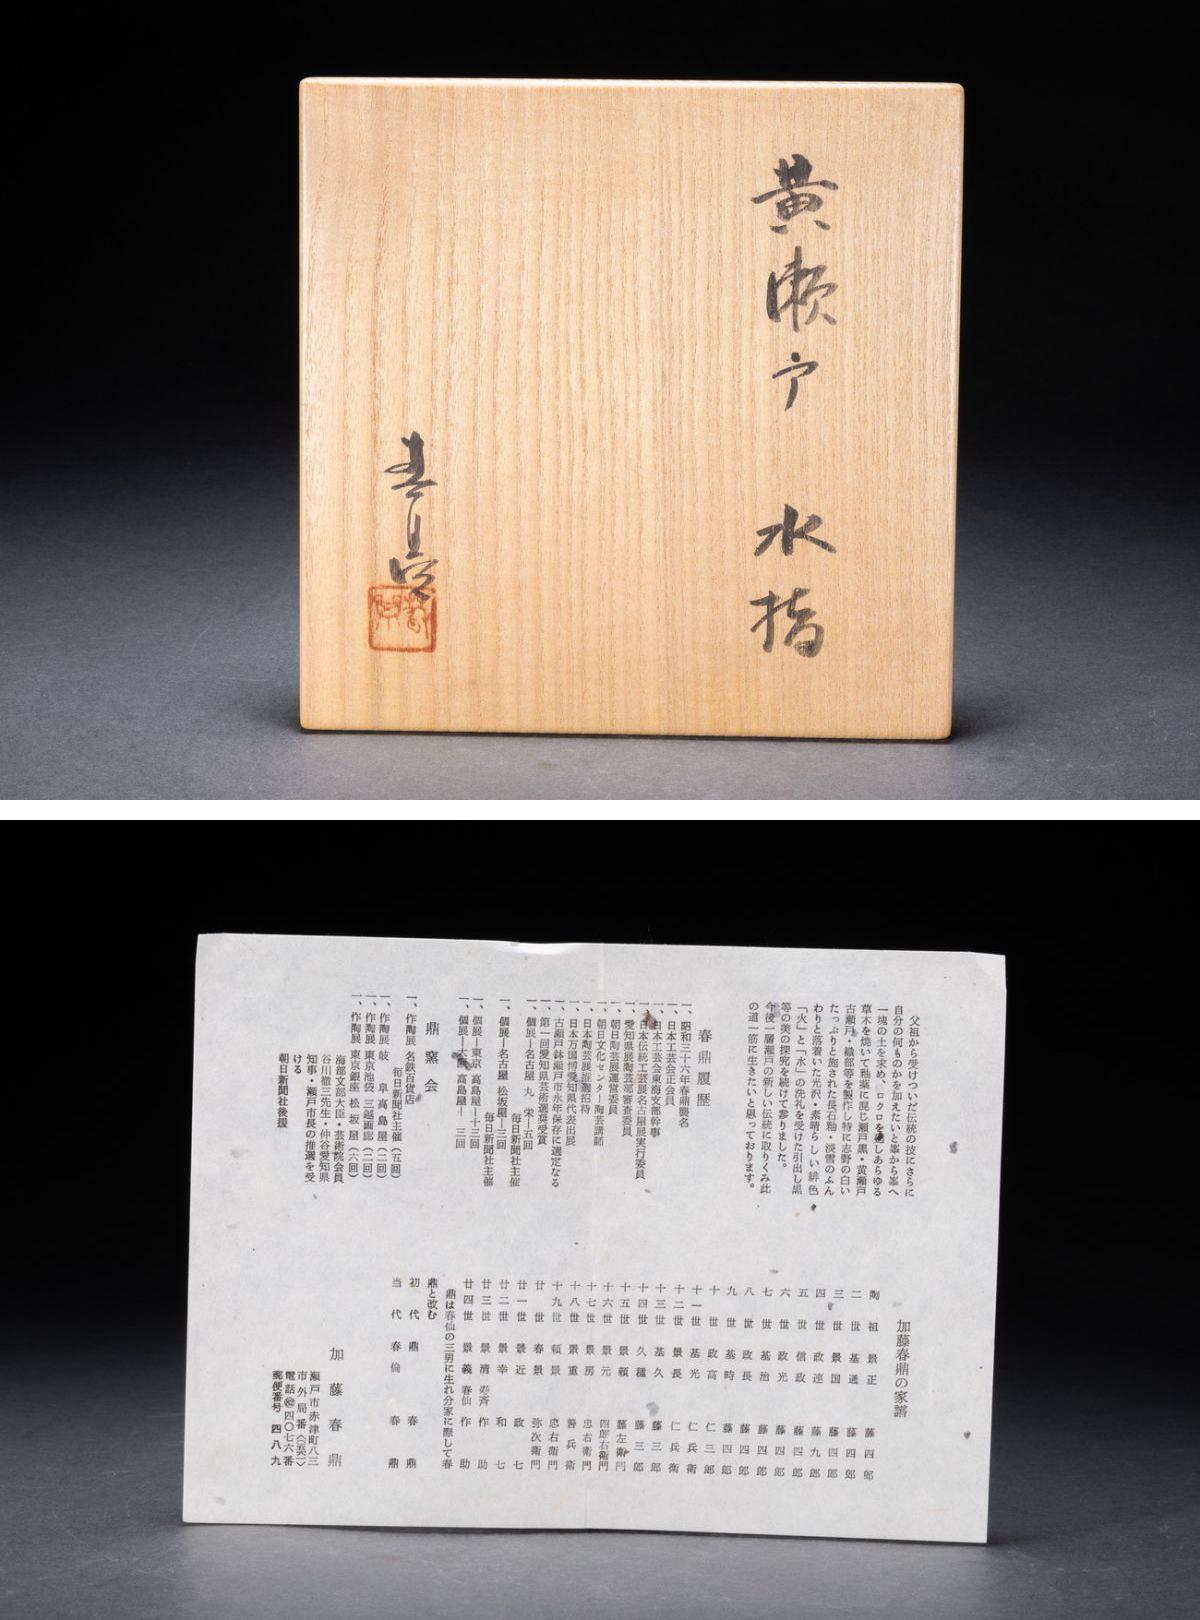 黄瀬戸 水指
春鼎
父祖から受けついだ伝統の技にさらに
自分の何ものかを加えたいと峯から峯へ
一塊の土を求め、ロクロを通しあらゆる
草木を焼いて釉薬に混じ瀬戸黒・黄瀬戸
古瀬戸・織部等を製作し特に志野の白い
たっぷりと施された長石釉・淡雪のふん
わりと落着いた光沢・素晴らしい緋色
「火」と「水」の洗礼を受けた引出し黒
等の美の探究を続けて参りました。
今後一層瀬戸の新しい伝統に取りくみ此
の道一筋に生きたいと思っております。
春鼎履歴
一、昭和三十六年春鼎襲名
一、日本工芸会正会員
一、日本工芸会東海支部幹事
一、日本伝統工芸展名古屋展実行委員
一、愛知県展陶芸部審査委員
一、朝日陶芸展運営委員
一、朝日文化センター陶芸講師
一、日本陶芸展推選招待
一、日本万国博愛知県代表出展
一、古瀬戸鉢瀬戸市永年保存に選定なる
一、第一回愛知県芸術選奨受賞
一、個展―名古屋 丸 栄―五回
毎日新聞社主催
一、個展―名古屋 松坂屋―三回
毎日新聞社主催
一、個展―東京 高島屋―十三回
一、個展―大阪 高島屋― 三回
鼎窯会
一、作陶展 名鉄百貨店
毎日新聞社主催(五回)
一、作陶展 岐 阜 高 島 屋(二回)
一、作陶展 東京池袋 三越画廊(二回)
一、作陶展 東京銀座 松 坂 屋(六回)
海部文部大臣・芸術院会員
谷川徹三先生・仲谷愛知県
知事・瀬戸市長の推選を受
ける
朝日新聞社後援
加藤春鼎の家譜
陶 祖 景正 藤四郎
二 世 基通 藤四郎
三 世 景国 藤四郎
四 世 政連 藤九郎
五 世 信政 藤四郎
六 世 政光 藤四郎
七 世 基治 藤四郎
八 世 政長 藤四郎
九 世 基時 藤四郎
十 世 政高 仁三郎
十一世 基光 仁兵衛
十二世 景長 仁兵衛
十三世 基久 藤三郎
十四世 久種 藤三郎
十五世 景頼 藤左衛門
十六世 景元 四郎右衛門
十七世 景房 忠右衛門
十八世 景重 善兵衛
十九世 頼景 忠右衛門
廿 世 春景 弥次衛門
廿一世 景近 政七
廿二世 景幸 和七
廿三世 景清 寿斉 作助
廿四世 景義 春仙 作助
鼎は春仙の三男に生れ分家に際して春
鼎と改む
初代 鼎 春鼎
当代 春倫 春鼎
加藤春鼎
瀬戸市赤津町八三
市外局番〈〇五六一〉
電話㉒四〇七六番
郵便番号 四八九